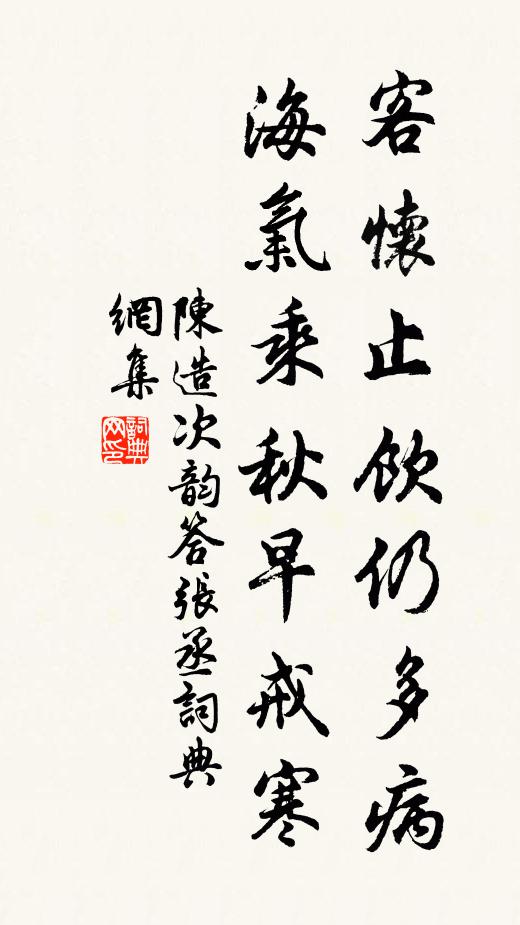 客懷止飲仍多病
海氣乘秋早戒寒
陳造次韵答張丞詞典
網集
詞典
网印